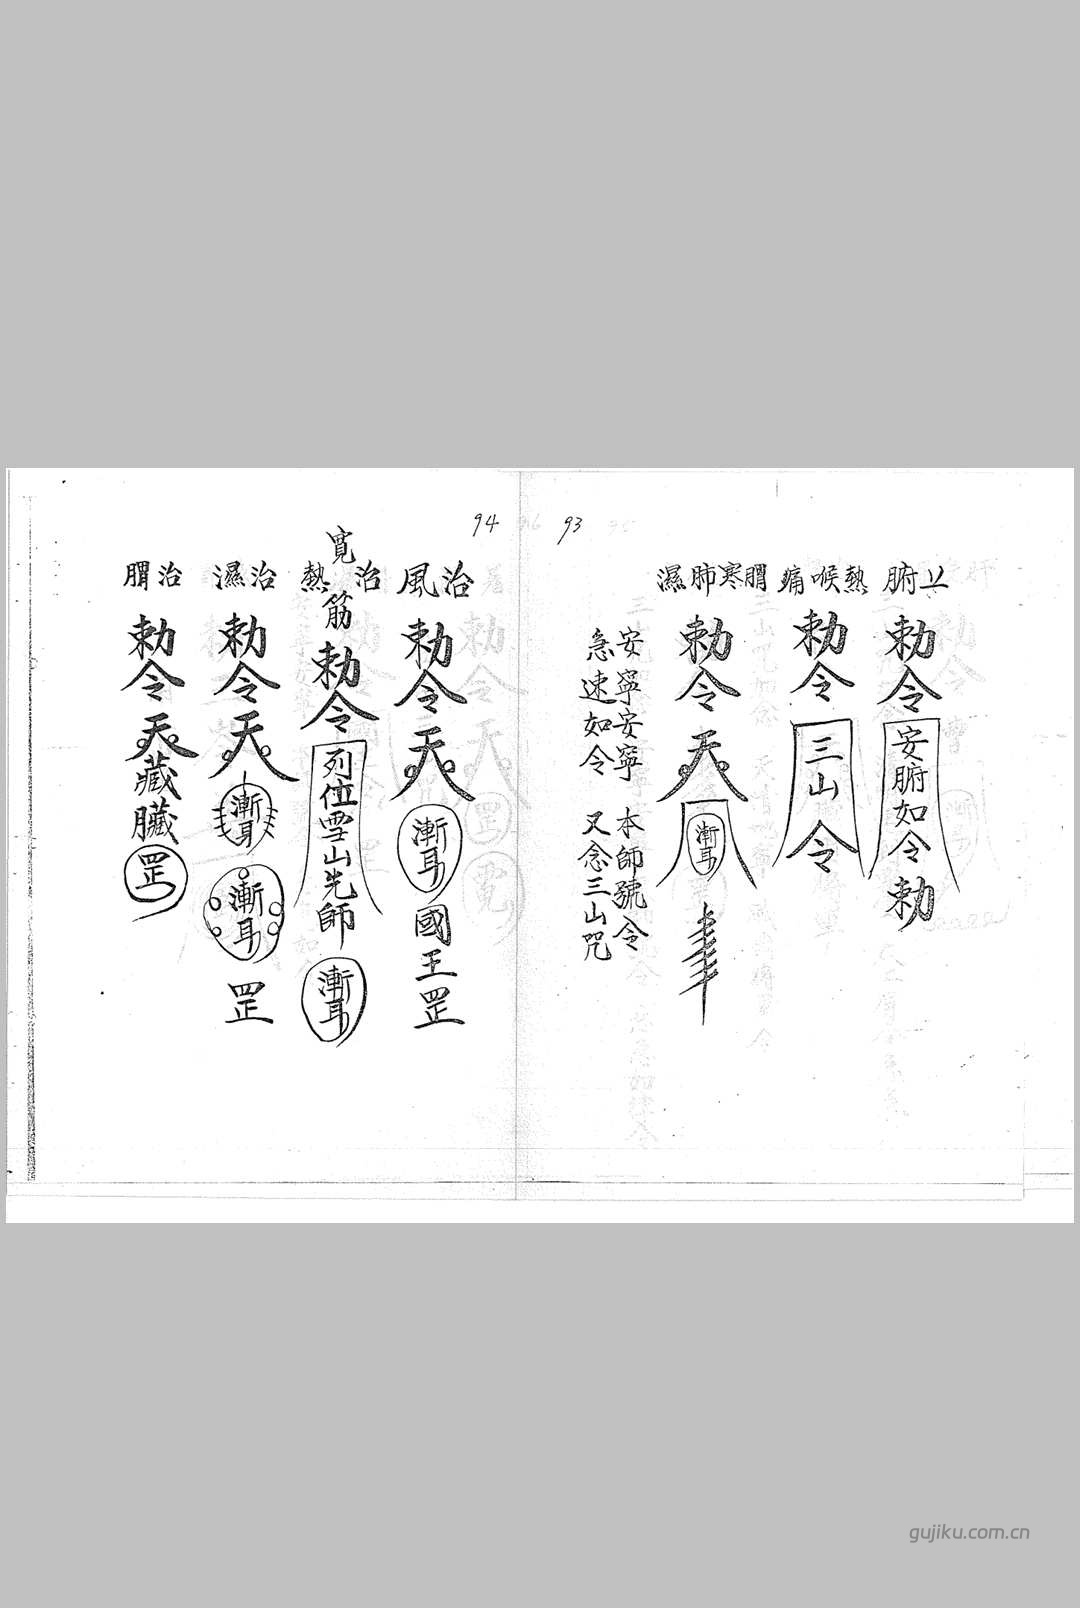 93
腑
勅令安腑如令勅
熱喉痛
勅令三山令
胃寒肺濕
勅令天漸耳
安寧安寧 本師號令
急速如令 又念三山咒
94
治風
勅令天漸耳國王罡
治熱
寬筋
勅令列位雪山先師漸耳
治濕
勅令天漸耳漸耳罡
治胃
勅令天藏臟罡
gujiku.com.cn